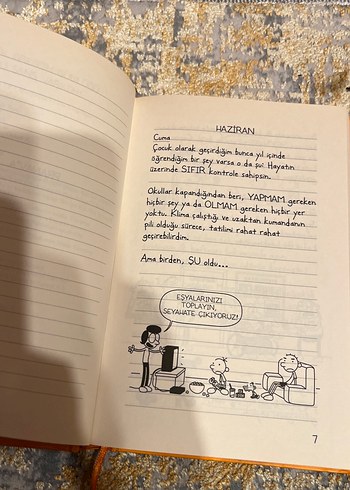 HAZİRAN
Cuma
Çocuk olarak geçirdiğim bunca yıl içinde
öğrendiğim bir şey varsa o da şu: Hayatın
üzerinde SIFIR kontrole sahipsin.
Okullar kapandığından beri, YAPMAM gereken
hiçbir şey ya da OLMAM gereken hiçbir yer
yoktu. Klima çalıştığı ve uzaktan kumandanın
pili olduğu sürece, tatilimi rahat rahat
geçirebilirdim.
Ama birden, ŞU oldu...
EŞYALARINIZI
TOPLAYIN,
SEYAHATE ÇIKIYORUZ!
7